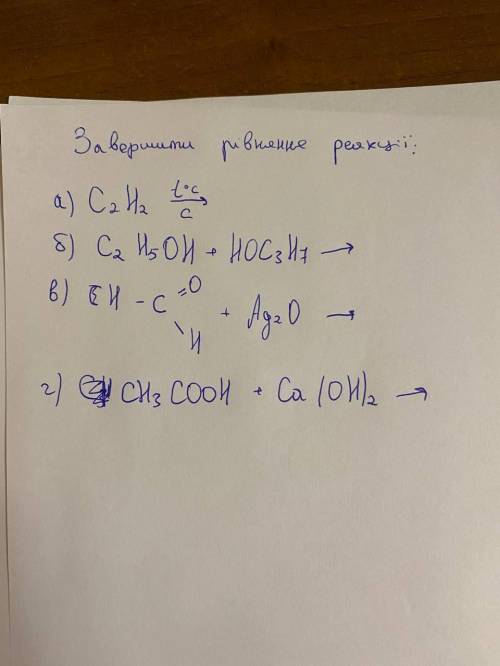 Завершити рівнянне реакції:
а) C₂H₂ t°C/C →
б) C₂H₅OH + HOC₃H₇ →
в) H - C =O \ H + Ag₂O →
г) CH₃COOH + Ca(OH)₂ →